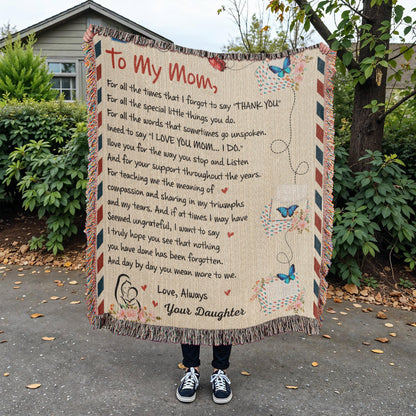 To My Mom,
For all the times that I forgot to say "THANK YOU"
For all the special little things you do.
For all the words that sometimes go unspoken.
need to say "I LOVE YOU MOM... I DO."
love you for the way you stop and Listen
And for your support throughout the years.
For teaching me the meaning of
compassion and sharing in my triumphs
and my tears. And if at times I may have
Seemed ungrateful, I want to say
I truly hope you see that nothing
you have done has been forgotten.
And day by day you mean more to me.
Love, Always
Your Daughter